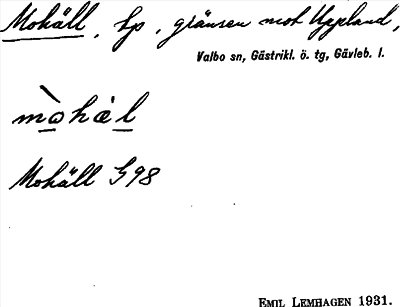 Mohäll, hp, gränsen mot Uppland,
Valbo sn, Gästrikl. ö. tg, Gävleb. l.
mòhȧl
Mohäll G98
EMIL LEMHAGEN 1931.